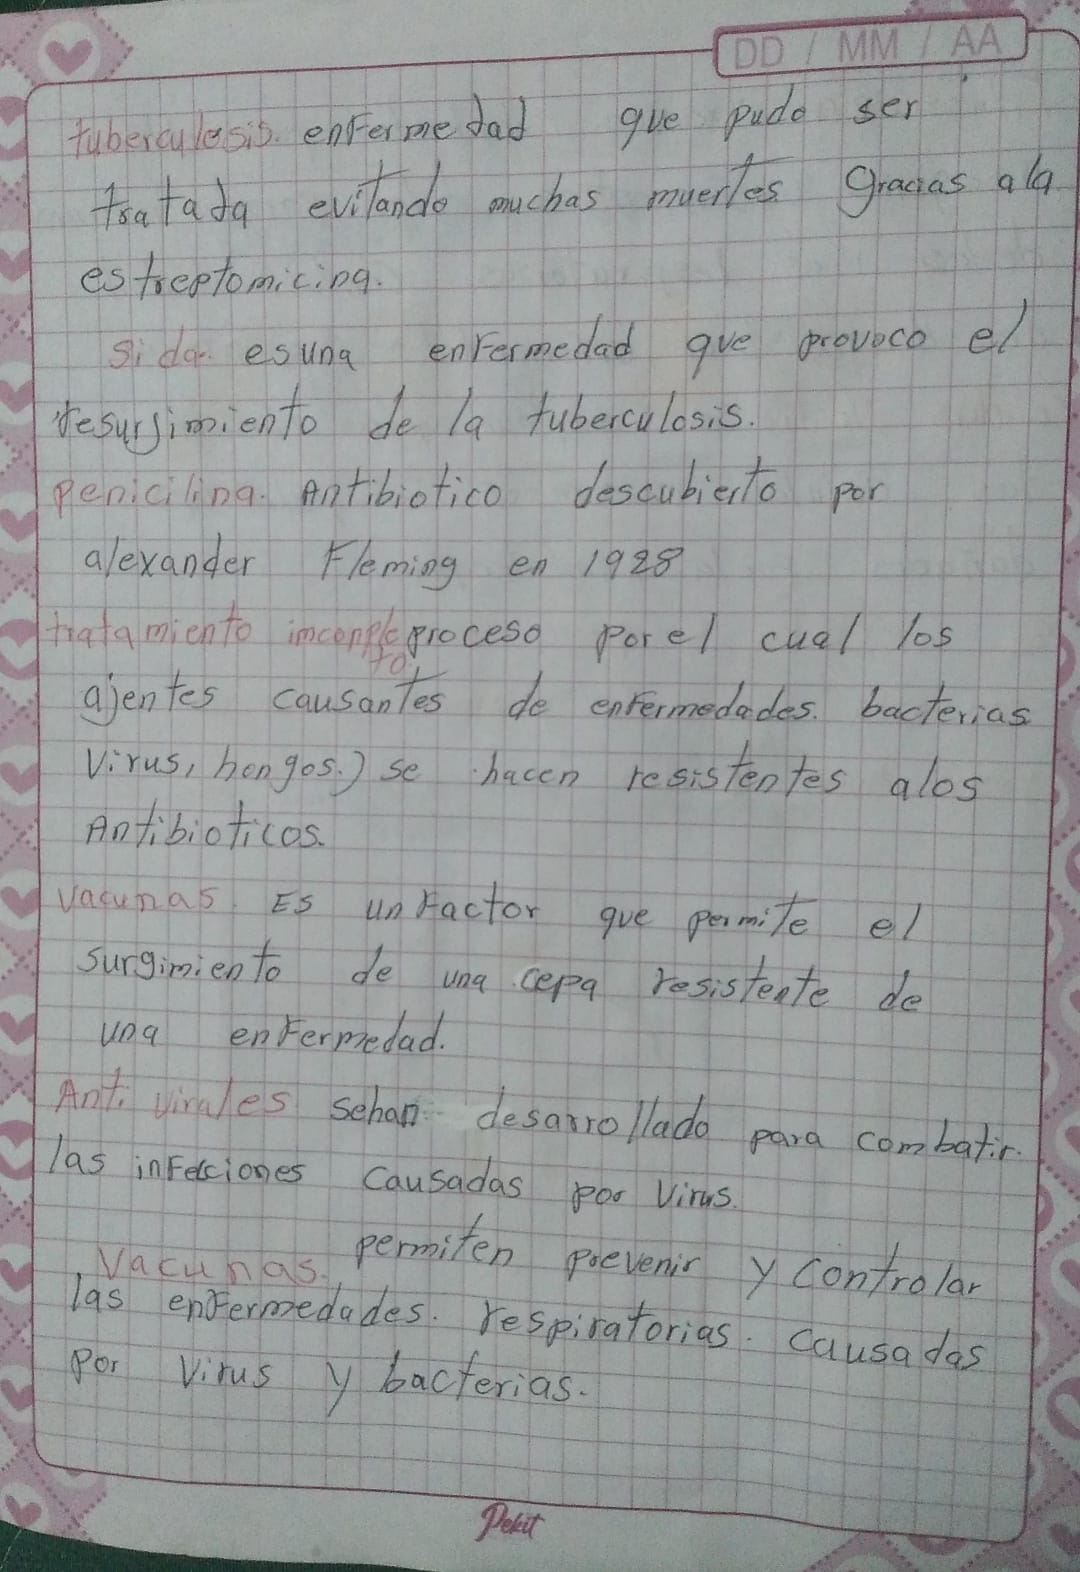 DD / MM / AA
tuberculosis. enfermedad que pudo ser
tratada evitando muchas muertes Gracias ala
estreptomicina.
Sida. esuna enfermedad que provoco el
resurjimiento de la tuberculosis.
penicilina. Antibiotico descubierto por
alexander Fleming en 1928
tratamiento imcomple proceso por el cual los
to.
ajentes causantes de enfermedades. bacterias
Virus, hongos.) se hacen resistentes alos
Antibioticos.
Vacunas. Es un factor que permite el
surgimiento de una cepa resistente de
una enfermedad.
Anti virales sehan desarrollado para combatir.
las infecciones causadas por Virus.
Vacunas. permiten prevenir y controlar
las enfermedades. respiratorias. causadas
por Virus y bacterias.
Pekit